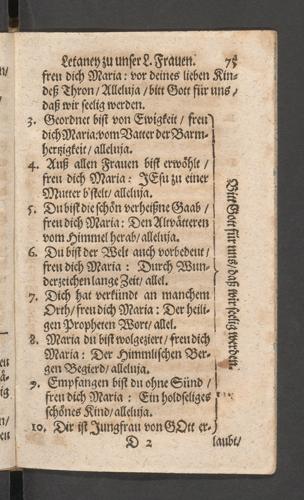 Letaney zu unser L. Frauen. 75
freu dich Maria: vor deines lieben Kin-
deß Thron/ Alleluja/ bitt Gott für uns/
daß wir seelig werden.
3. Geordnet bist von Ewigkeit/ freu
dich Maria: vom Vatter der Barm-
hertzigkeit/ alleluja.
4. Auß allen Frauen bist erwöhlt/
freu dich Maria: JEsu zu einer
Mutter b'stelt/ alleluja.
5. Du bist die schön verheißne Gaab/
freu dich Maria: Den Altvätteren
vom Himmel herab/ alleluja.
6. Du bist der Welt auch vorbedeut/
freu dich Maria: Durch Wun-
derzeichen lange Zeit/ allel.
7. Dich hat verkündt an manchem
Orth/ freu dich Maria: Der heili-
gen Propheten Wort/ allel.
8. Maria du bist wolgeziert/ freu dich
Maria: Der Himmlischen Ber-
gen Begierd/ alleluja.
9. Empfangen bist du ohne Sünd/
freu dich Maria: Ein holdseliges
schönes Kind/ alleluja.
10. Dir ist Jungfrau von GOtt er-
Bitt Gott für uns/ daß wir seelig werden.
D 2 laubt/